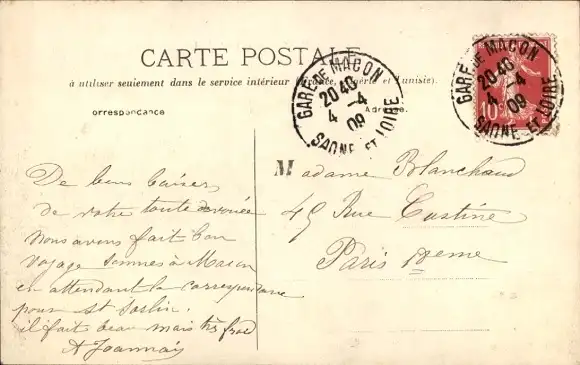 CARTE POSTALE
à utiliser seulement dans le service intérieur (France, Algérie et Tunisie).
orrespondance
Adresse
GARE DE MACON
20 40
4 -4
09
SAONE ET LOIRE
GARE DE MACON
20 40
4 -4
09
SAONE ET LOIRE
10
De bons baisers
de votre toute dévouée
Nous avons fait bon
voyage sommes à Macon
en attendant la correspondance
pour St
il fait beau mais très froid
A Joannais
Madame Blanchaud
45 Rue Custine
Paris